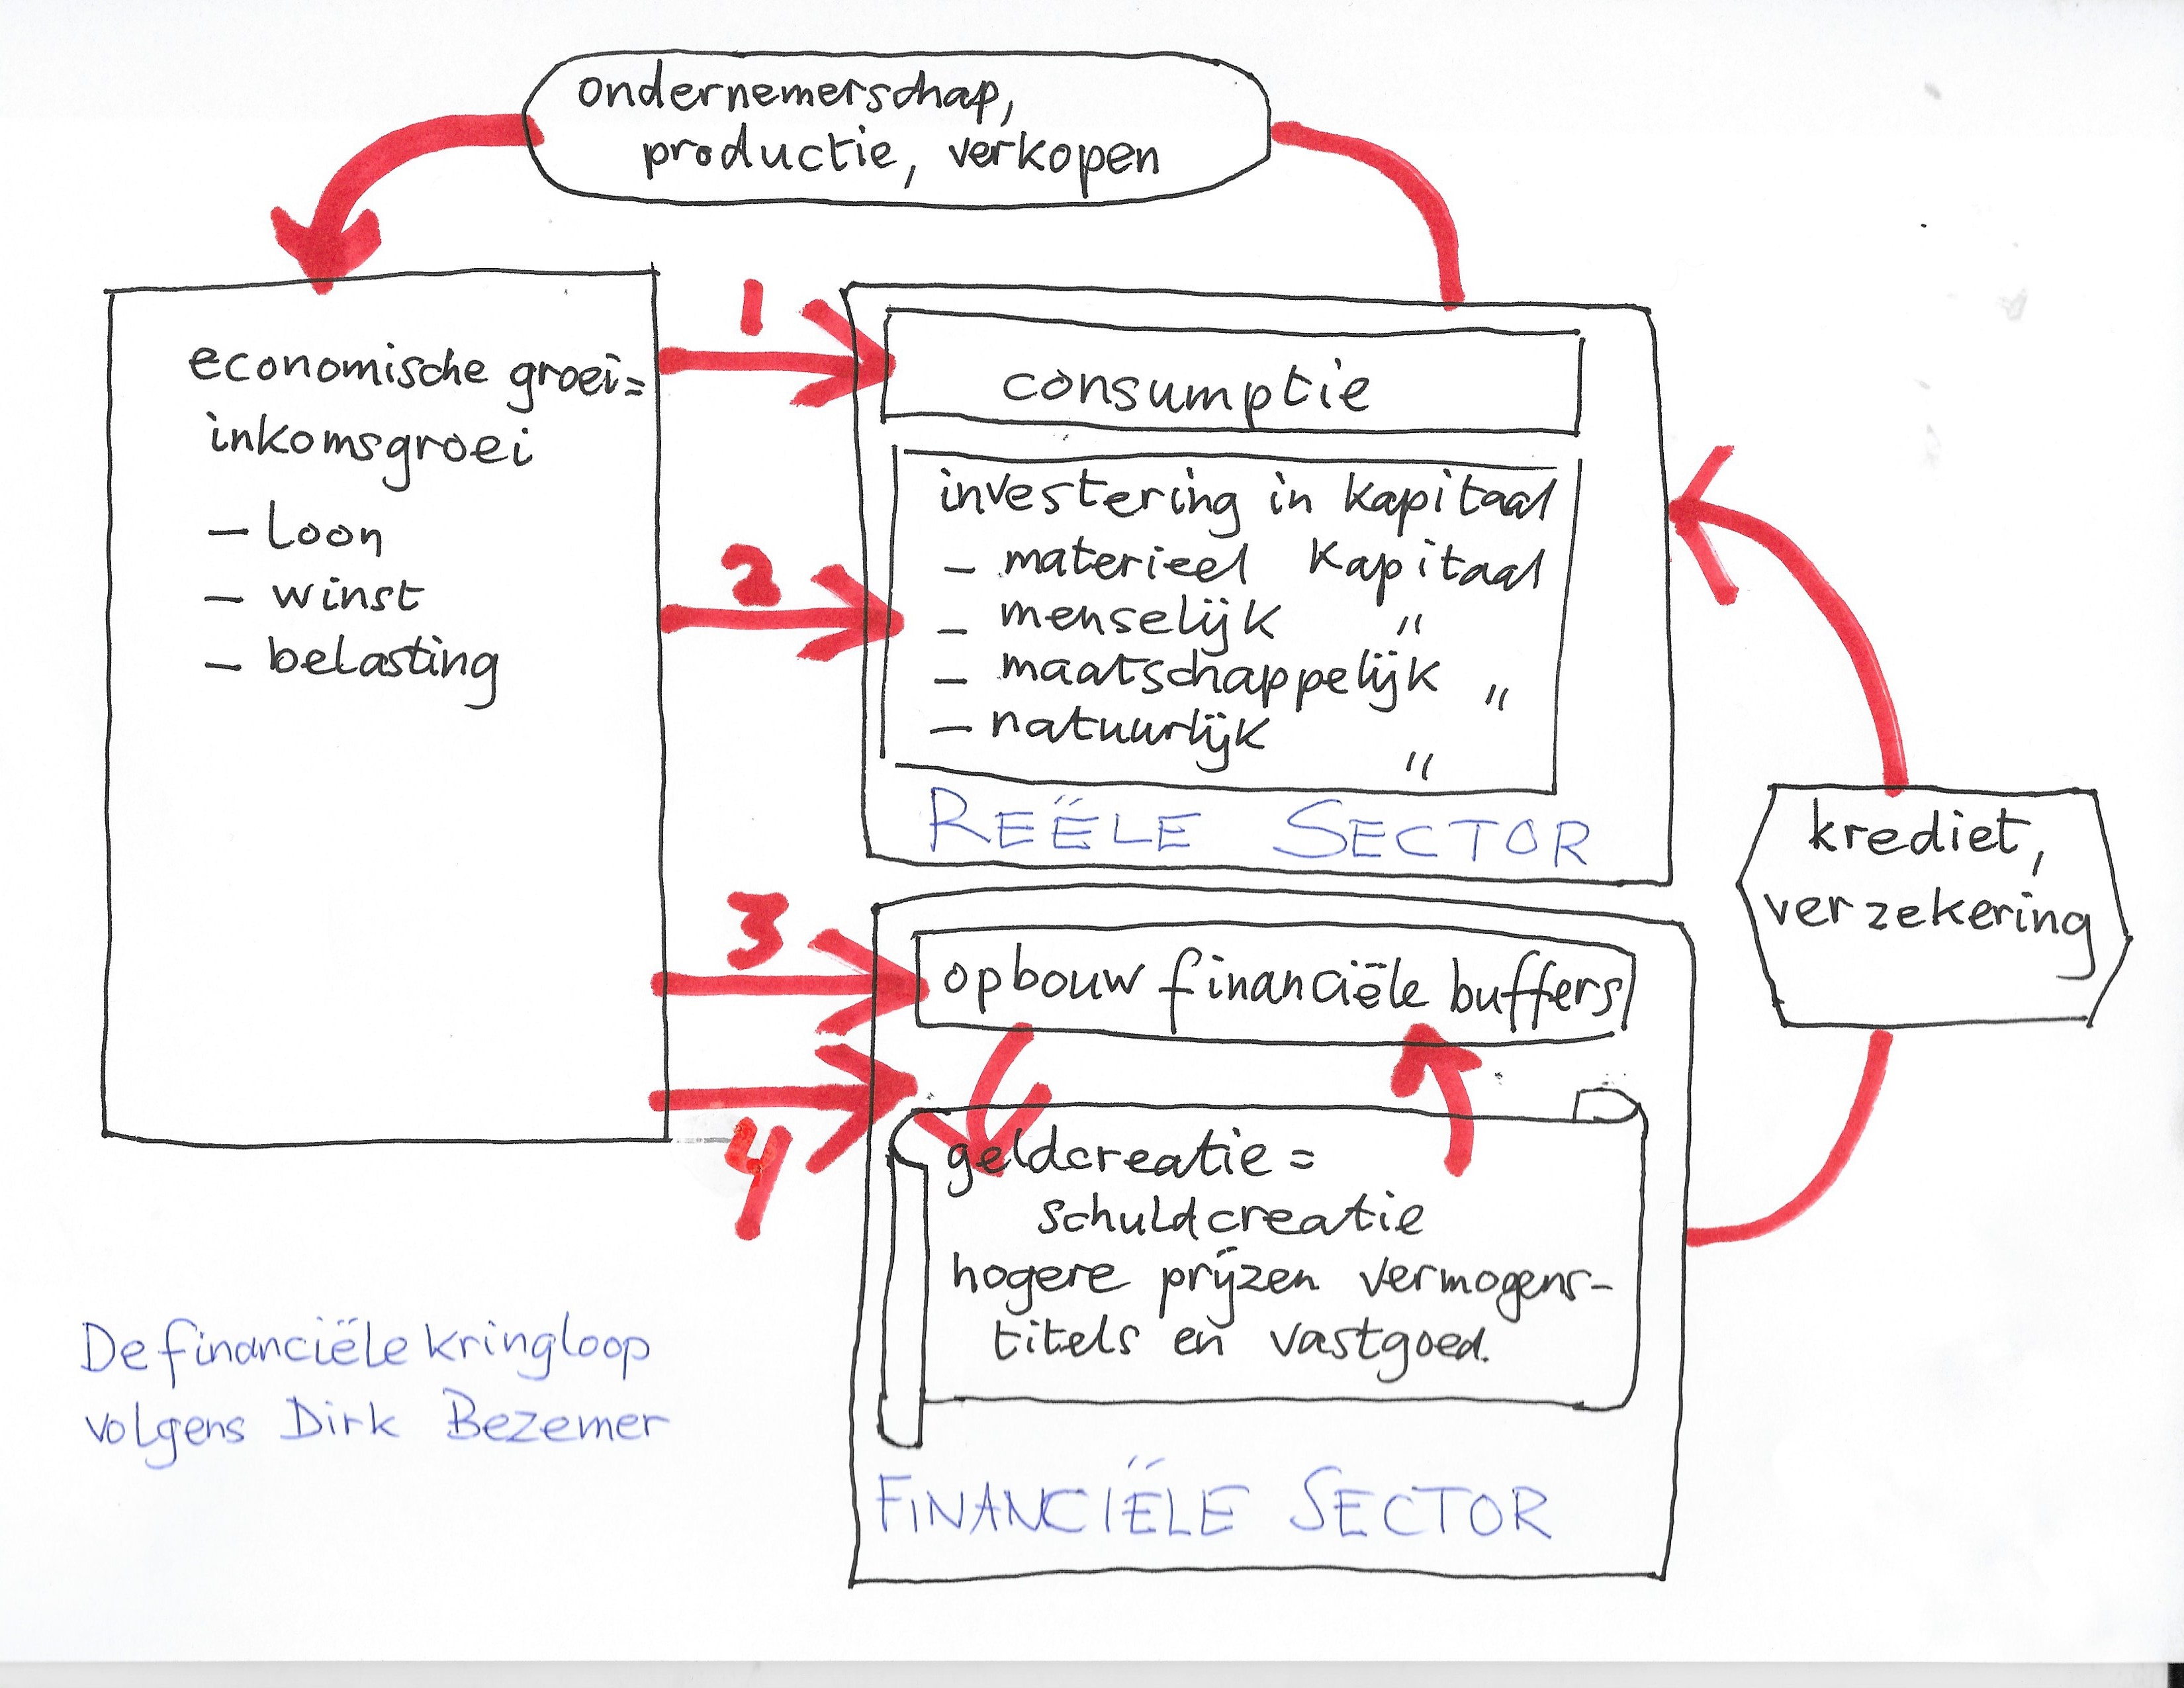 ondernemerschap,
productie, verkopen
economische groei=
inkomsgroei
- loon
- winst
- belasting
1
2
3
4
consumptie
investering in kapitaal
- materieel kapitaal
- menselijk "
- maatschappelijk "
- natuurlijk "
REËLE SECTOR
krediet,
verzekering
opbouw financiële buffers
geldcreatie =
schuldcreatie
hogere prijzen vermogens-
titels en vastgoed.
FINANCIËLE SECTOR
De financiële kringloop
volgens Dirk Bezemer